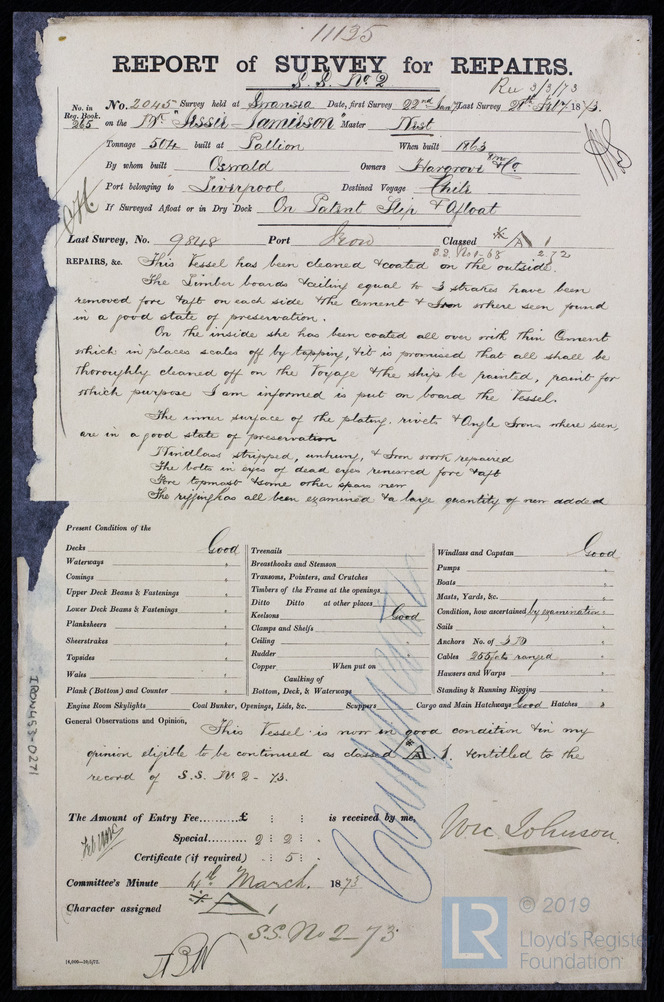 11135
REPORT of SURVEY for REPAIRS.
S.S. No 2
Rec 3/3/73
No. in Reg. Book. 265
No. 2045 Survey held at Swansea Date, first Survey 22nd Jany Last Survey 28th Feby 1873.
on the Bk "Jessie Jamieson" Master West
Tonnage 504 built at Pallion When built 1863
By whom built Oswald Owners Hargrove & Co.
Port belonging to Liverpool Destined Voyage Chili
If Surveyed Afloat or in Dry Dock On Patent Slip & Afloat
Last Survey, No. 9848 Port Iron Classed A 1
S.S. No 1-68 2.72
REPAIRS, &c. This Vessel has been cleaned & coated on the outside.
The Limber boards & ceiling equal to 3 strakes have been
removed fore & aft on each side & the cement & Iron where seen found
in a good state of preservation.
On the inside she has been coated all over with thin Cement
which in places scales off by tapping, & it is promised that all shall be
thoroughly cleaned off on the Voyage & the ship be painted, paint for
which purpose I am informed is put on board the Vessel.
The inner surface of the plating, rivets & Angle Irons where seen,
are in a good state of preservation
Windlass stripped, unhung, & Iron work repaired
The bolts in eyes of dead eyes renewed fore & aft
Fore topmast & some other spars new
The rigging has all been examined & a large quantity of new added
Present Condition of the
Decks Good
Waterways "
Comings "
Upper Deck Beams & Fastenings "
Lower Deck Beams & Fastenings "
Planksheers "
Sheerstrakes "
Topsides "
Wales "
Plank (Bottom) and Counter "
Treenails
Breasthooks and Stemson
Transoms, Pointers, and Crutches
Timbers of the Frame at the openings
Ditto Ditto at other places
Keelsons Good
Clamps and Shelfs "
Ceiling "
Rudder "
Copper When put on
Caulking of
Bottom, Deck, & Waterways "
Windlass and Capstan Good
Pumps "
Boats "
Masts, Yards, &c. "
Condition, how ascertained by examination
Sails "
Anchors No. of 3 B
Cables 255 fms ranged
Hawsers and Warps "
Standing & Running Rigging "
Engine Room Skylights Coal Bunker, Openings, Lids, &c. Scuppers Cargo and Main Hatchways Good Hatches "
General Observations and Opinion, This Vessel is now in good condition & in my
opinion eligible to be continued as classed A. 1. & entitled to the
record of S.S. No 2 - 73.
The Amount of Entry Fee £ : : is received by me,
Special 2 : 2 :
Certificate (if required) : 5 :
Wm Johnson
Committee's Minute 4th March. 1873
Character assigned A 1
S.S. No 2-73
IRON453-0271
LR
© 2019
Lloyd's Register
Foundation